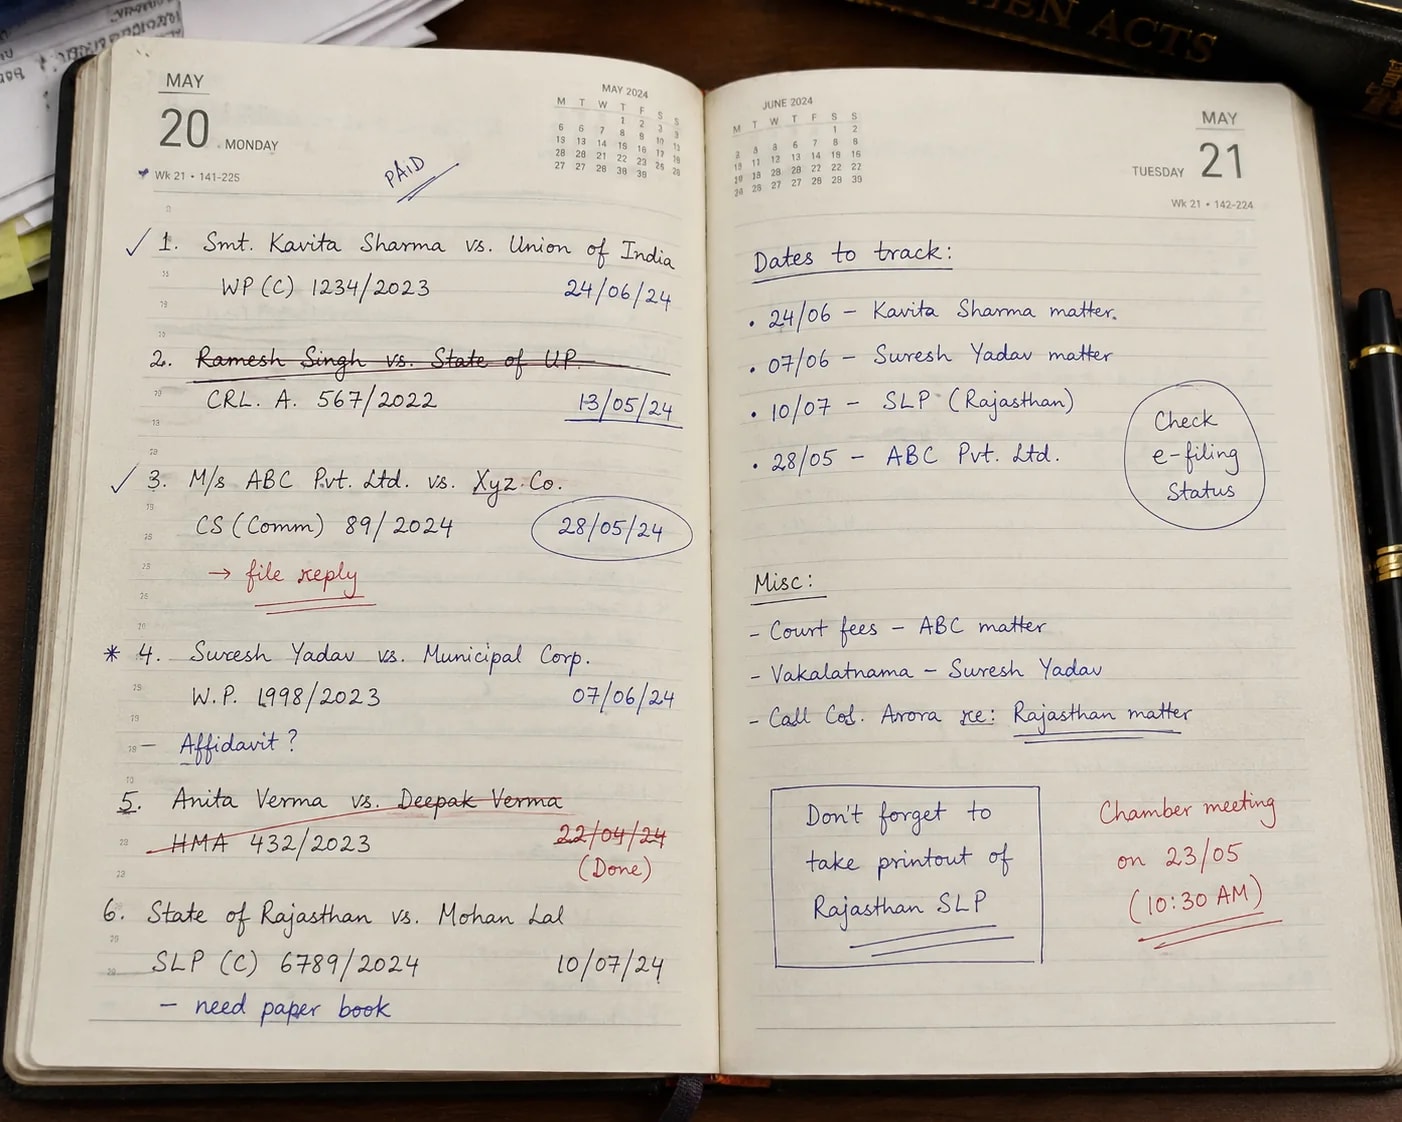 MAY
20 MONDAY
Wk 21 • 141-225
MAY 2024
M T W T F S S
PAID
✓ 1. Smt. Kavita Sharma vs. Union of India
WP (C) 1234/2023 24/06/24
2. Ramesh Singh vs. State of UP.
CRL. A. 567/2022 13/05/24
✓ 3. M/s ABC Pvt. Ltd. vs. Xyz Co.
CS (Comm) 89/2024 28/05/24
→ file reply
* 4. Suresh Yadav vs. Municipal Corp.
W.P. 1998/2023 07/06/24
— Affidavit ?
5. Anita Verma vs. Deepak Verma
HMA 432/2023 22/04/24
(Done)
6. State of Rajasthan vs. Mohan Lal
SLP (C) 6789/2024 10/07/24
– need paper book
JUNE 2024
M T W T F S S
MAY
TUESDAY 21
Wk 21 • 142-224
Dates to track:
• 24/06 – Kavita Sharma matter.
• 07/06 – Suresh Yadav matter
• 10/07 – SLP (Rajasthan)
• 28/05 – ABC Pvt. Ltd.
Check
e-filing
Status
Misc:
- Court fees – ABC matter
- Vakalatnama – Suresh Yadav
- Call Arora re: Rajasthan matter
Don't forget to
take printout of
Rajasthan SLP
Chamber meeting
on 23/05
(10:30 AM)
ACTS